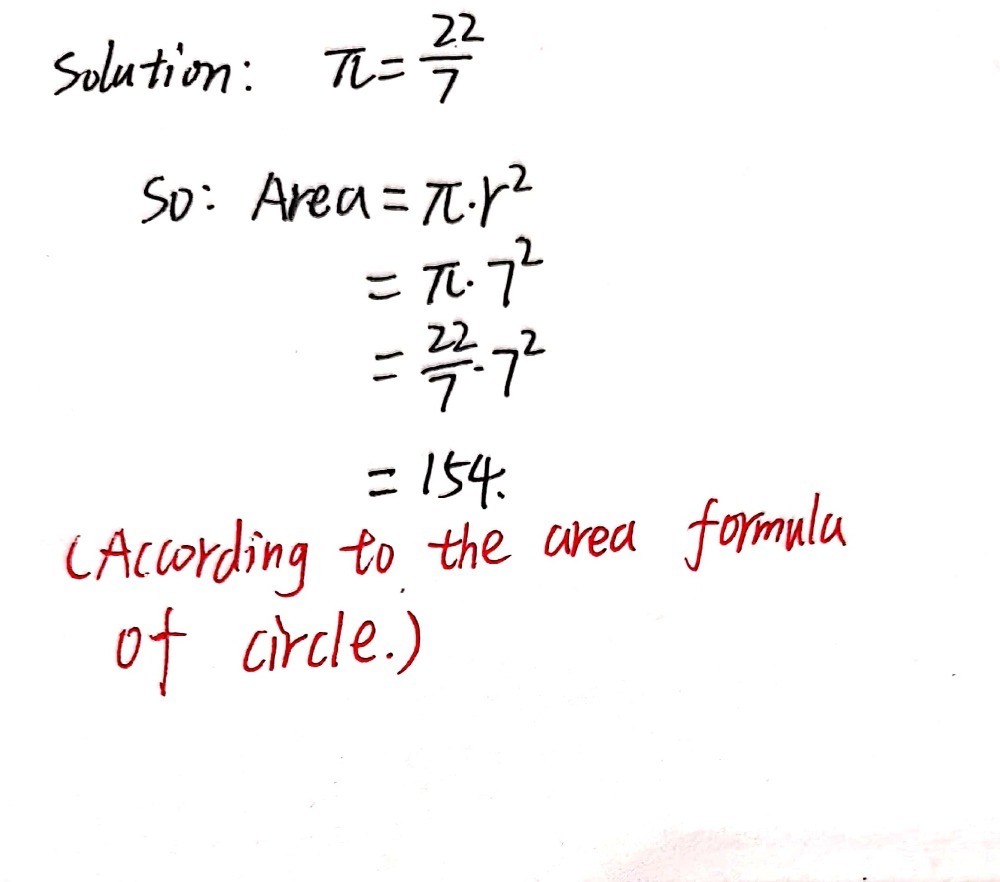 Solution: π = 22/7
So: Area = π·r²
= π·7²
= 22/7·7²
= 154.
(According to the area formula
of circle.)